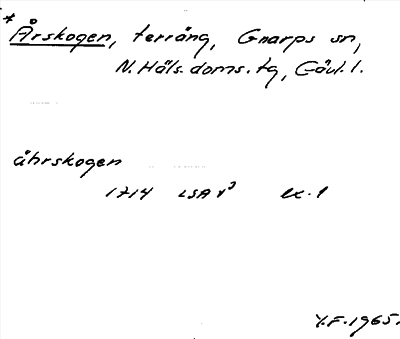 * Årskogen, terräng, Gnarps sn,
N. Häls. doms. tg, Gävl. l.
åhrskogen
1714 LSA v³ ex. 1
Y.F. 1965.